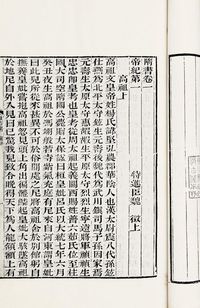 隋書卷一
帝紀第一
高祖上
特進臣魏徵上
高祖文皇帝姓楊氏諱堅弘農郡華陰人也漢太尉震八代孫鉉
仕燕為北平太守鉉生元壽後魏代為武川鎮司馬子孫因家焉
元壽生太原太守惠嘏嘏生平原太守烈烈生寧遠將軍禎禎生
忠忠即皇考也皇考從周太祖起義關西賜姓普六茹氏位至柱
國大司空隋國公薨贈太保諡曰桓皇妣呂氏以大統七年六月
癸丑夜生高祖於馮翊般若寺紫氣充庭有尼來自河東謂皇妣
曰此兒所從來甚異不可於俗間處之尼將高祖舍於別館躬自
撫養皇妣嘗抱高祖忽見頭上角出徧體鱗起皇妣大駭墜高祖
於地尼自外入見曰已驚我兒致令晚得天下為人龍頷額上有